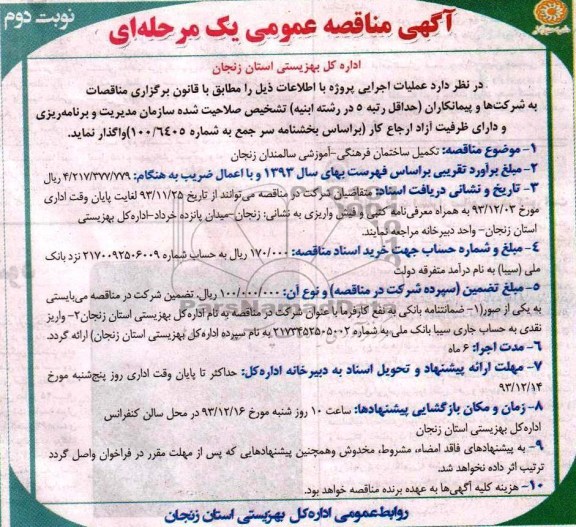 نوبت دوم
آگهی مناقصه عمومی یک مرحله‌ای
اداره کل بهزیستی استان زنجان
در نظر دارد عملیات اجرایی پروژه با اطلاعات ذیل را مطابق با قانون برگزاری مناقصات
به شرکت‌ها و پیمانکاران (حداقل رتبه ۵ در رشته ابنیه) تشخیص صلاحیت شده سازمان مدیریت و برنامه‌ریزی
و دارای ظرفیت آزاد ارجاع کار (براساس بخشنامه سر جمع به شماره ۱۰۰/۶۴۰۵) واگذار نماید.
۱- موضوع مناقصه: تکمیل ساختمان فرهنگی-آموزشی سالمندان زنجان
۲- مبلغ برآورد تقریبی براساس فهرست بهای سال ۱۳۹۳ و با اعمال ضریب به هنگام: ۴/۲۱۷/۳۷۷/۷۷۹ ریال
۳- تاریخ و نشانی دریافت اسناد: متقاضیان شرکت در مناقصه می‌توانند از تاریخ ۹۳/۱۱/۲۵ لغایت پایان وقت اداری
مورخ ۹۳/۱۲/۰۳ به همراه معرفی‌نامه کتبی و فیش واریزی به نشانی: زنجان-میدان پانزده خرداد-اداره‌کل بهزیستی
استان زنجان- واحد دبیرخانه مراجعه نمایند.
۴- مبلغ و شماره حساب جهت خرید اسناد مناقصه: ۱۷۰/۰۰۰ ریال به حساب شماره ۲۱۷۰۰۹۲۵۰۶۰۰۹ نزد بانک
ملی (سیبا) به نام درآمد متفرقه دولت
۵- مبلغ تضمین (سپرده شرکت در مناقصه) و نوع آن: ۱۰۰/۰۰۰/۰۰۰ ریال. تضمین شرکت در مناقصه می‌بایستی
به یکی از صور(۱- ضمانتنامه بانکی به نفع کارفرما با عنوان شرکت در مناقصه به نام اداره‌کل بهزیستی استان زنجان۲- واریز
نقدی به حساب جاری سیبا بانک ملی به شماره ۲۱۷۳۴۵۲۵۰۵۰۰۲ به نام سپرده اداره‌کل بهزیستی استان زنجان) ارائه گردد.
۶- مدت اجرا: ۶ ماه
۷- مهلت ارائه پیشنهاد و تحویل اسناد به دبیرخانه اداره‌کل: حداکثر تا پایان وقت اداری روز پنج‌شنبه مورخ
۹۳/۱۲/۱۴
۸- زمان و مکان بازگشایی پیشنهادها: ساعت ۱۰ روز شنبه مورخ ۹۳/۱۲/۱۶ در محل سالن کنفرانس
اداره‌کل بهزیستی استان زنجان
۹- به پیشنهادهای فاقد امضاء، مشروط، مخدوش وهمچنین پیشنهادهایی که پس از مهلت مقرر در فراخوان واصل گردد
ترتیب اثر داده نخواهد شد.
۱۰- هزینه کلیه آگهی‌ها به عهده برنده مناقصه خواهد بود.
روابط‌عمومی اداره‌کل بهزیستی استان زنجان